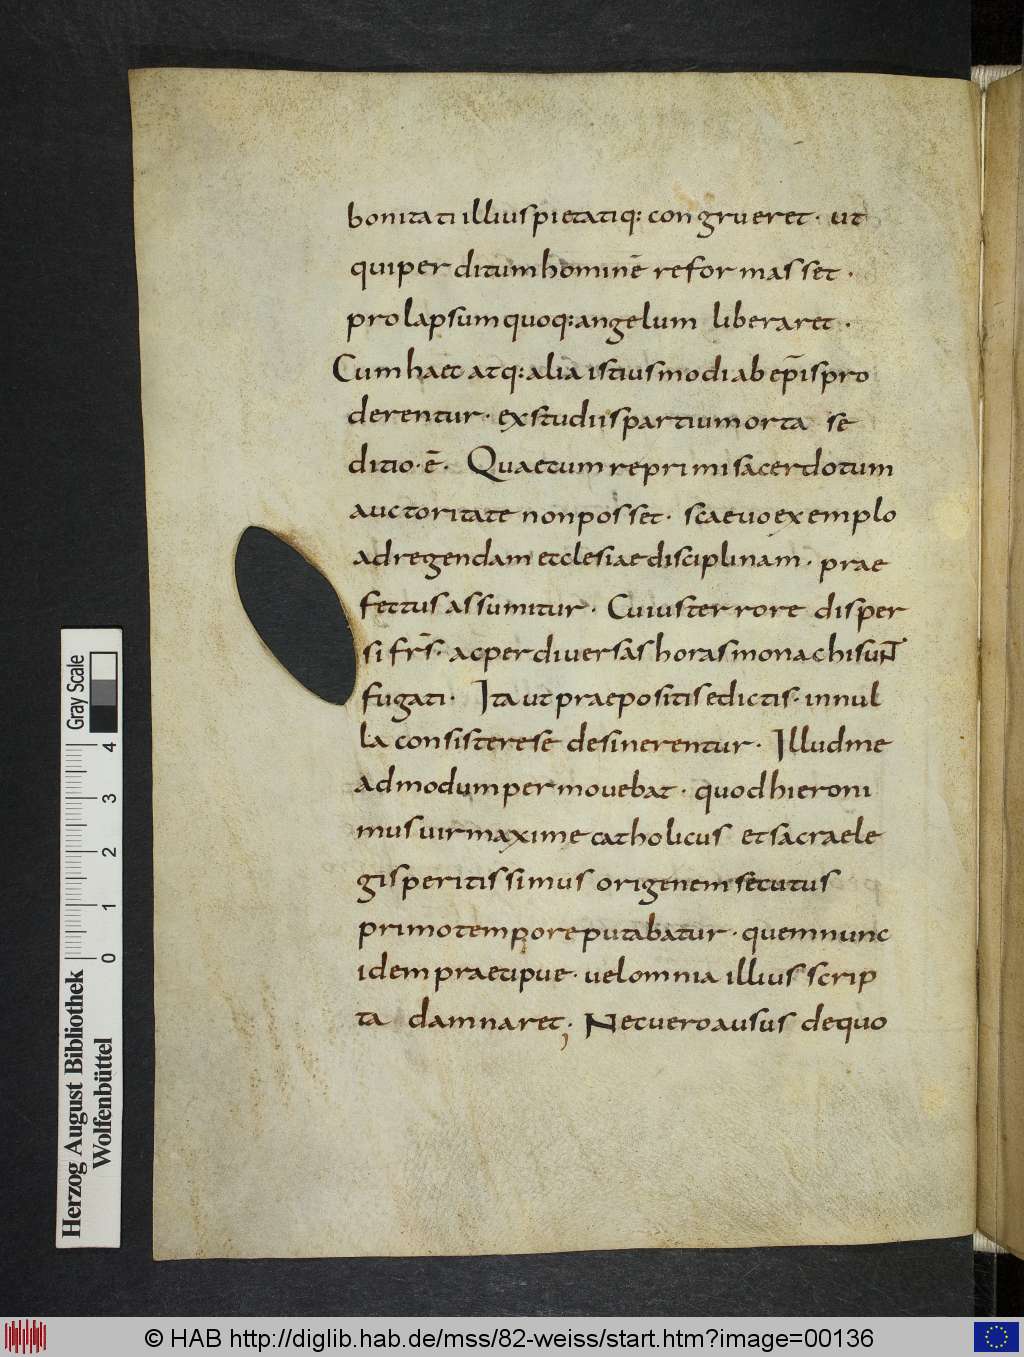 bonitati illius pietatiq: congrueret · ut
qui perditum hominē reformasset ·
prolapsum quoq: angelum liberaret ·
Cum haec atq: alia istiusmodi ab ep̄is pro
derentur · ex studiis partium orta se
ditio · ē · Quae cum reprimi sacerdotum
auctoritate non posset · scaeuo exemplo
ad regendam ecclesiae disciplinam · prae
fectus assumitur · Cuius terrore disper
si fr̄s · ac per diuersas horas monachi sunt
fugati · Ita ut praepositis edictis · in nul
la consistere se desinerentur · Illud me
admodum permouebat · quod hieroni
mus uir maxime catholicus et sacrae le
gis peritissimus origenem secutus
primo tempore putabatur · quem nunc
idem praecipue · uel omnia illius scrip
ta damnaret ; Nec uero ausus de quo
Gray Scale
4
3
2
1
0
Herzog August Bibliothek
Wolfenbüttel
© HAB http://diglib.hab.de/mss/82-weiss/start.htm?image=00136